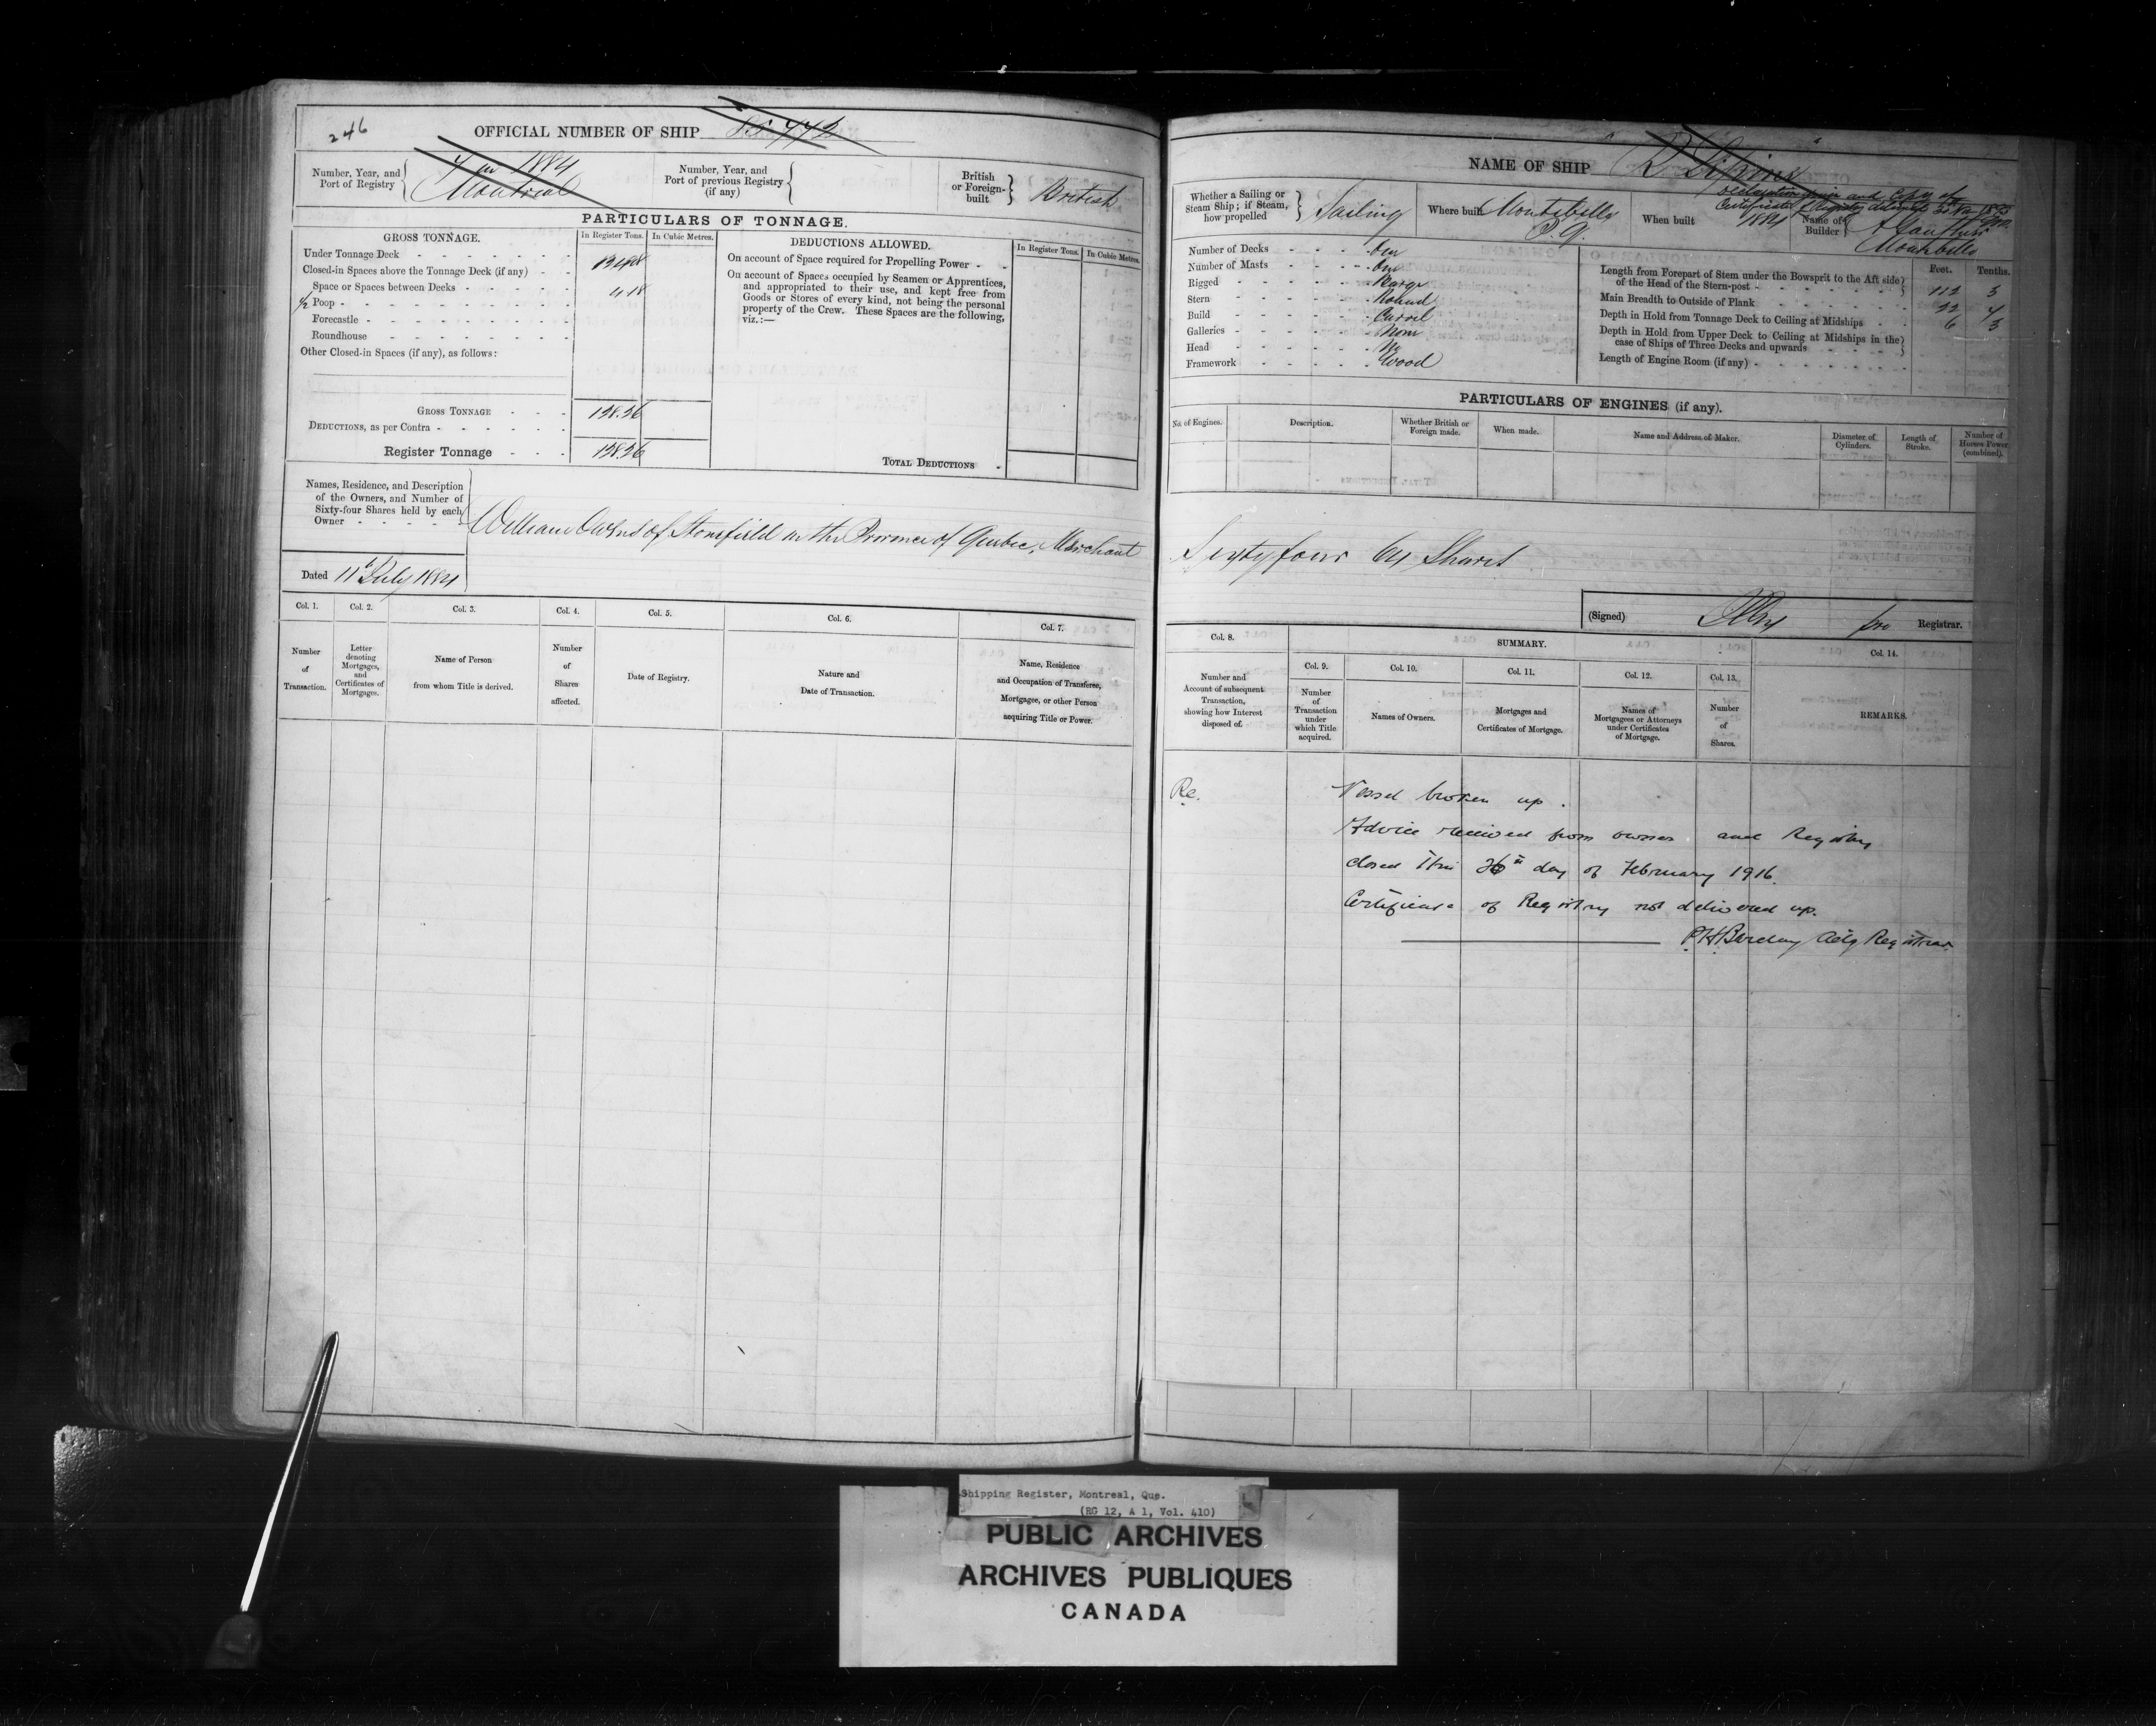 246
OFFICIAL NUMBER OF SHIP
Number, Year, and Port of Registry
7 in 1884
Montreal
Number, Year, and Port of previous Registry (if any)
British or Foreign-built
British
PARTICULARS OF TONNAGE.
GROSS TONNAGE.
In Register Tons.
In Cubic Metres.
Under Tonnage Deck
Closed-in Spaces above the Tonnage Deck (if any)
Space or Spaces between Decks
½ Poop
4.18
Forecastle
Roundhouse
Other Closed-in Spaces (if any), as follows:
GROSS TONNAGE 138.26
DEDUCTIONS, as per Contra
Register Tonnage 138.26
DEDUCTIONS ALLOWED.
In Register Tons.
In Cubic Metres.
On account of Space required for Propelling Power
On account of Spaces occupied by Seamen or Apprentices,
and appropriated to their use, and kept free from
Goods or Stores of every kind, not being the personal
property of the Crew. These Spaces are the following,
viz.:—
TOTAL DEDUCTIONS
Names, Residence, and Description
of the Owners, and Number of
Sixty-four Shares held by each
Owner
William Owens of Stonefield in the Province of Quebec, Merchant
Dated 11th July 1884
Col. 1.
Col. 2.
Col. 3.
Col. 4.
Col. 5.
Col. 6.
Col. 7.
Number of Transaction.
Letter denoting Mortgages, and Certificates of Mortgages.
Name of Person from whom Title is derived.
Number of Shares affected.
Date of Registry.
Nature and Date of Transaction.
Name, Residence and Occupation of Transferee, Mortgagee, or other Person acquiring Title or Power.
NAME OF SHIP
Whether a Sailing or Steam Ship; if Steam, how propelled
Sailing
Where built
Montebello
P.Q.
When built
1884
Name of Builder
Montebello
Number of Decks One
Number of Masts One
Rigged Barge
Stern Round
Build Carvel
Galleries None
Head No
Framework Wood
Feet.
Tenths.
Length from Forepart of Stem under the Bowsprit to the Aft side of the Head of the Stern-post 112 3
Main Breadth to Outside of Plank 22 4
Depth in Hold from Tonnage Deck to Ceiling at Midships 6 3
Depth in Hold from Upper Deck to Ceiling at Midships in the case of Ships of Three Decks and upwards
Length of Engine Room (if any)
PARTICULARS OF ENGINES (if any).
No. of Engines.
Description.
Whether British or Foreign made.
When made.
Name and Address of Maker.
Diameter of Cylinders.
Length of Stroke.
Number of Horses Power (combined).
Sixty four 64 Shares
(Signed)
pro Registrar.
Col. 8.
SUMMARY.
Col. 9.
Col. 10.
Col. 11.
Col. 12.
Col. 13.
Col. 14.
Number and Account of subsequent Transaction, showing how Interest disposed of.
Number of Transaction under which Title acquired.
Names of Owners.
Mortgages and Certificates of Mortgage.
Names of Mortgagees or Attorneys under Certificates of Mortgage.
Number of Shares.
REMARKS.
Re. Vessel broken up.
Advice received from owner and Registry
closed this 26th day of February 1916.
Certificate of Registry not delivered up.
P.H. Barclay Actg Registrar.
Shipping Register, Montreal, Que.
(RG 12, A 1, Vol. 410)
PUBLIC ARCHIVES
ARCHIVES PUBLIQUES
CANADA